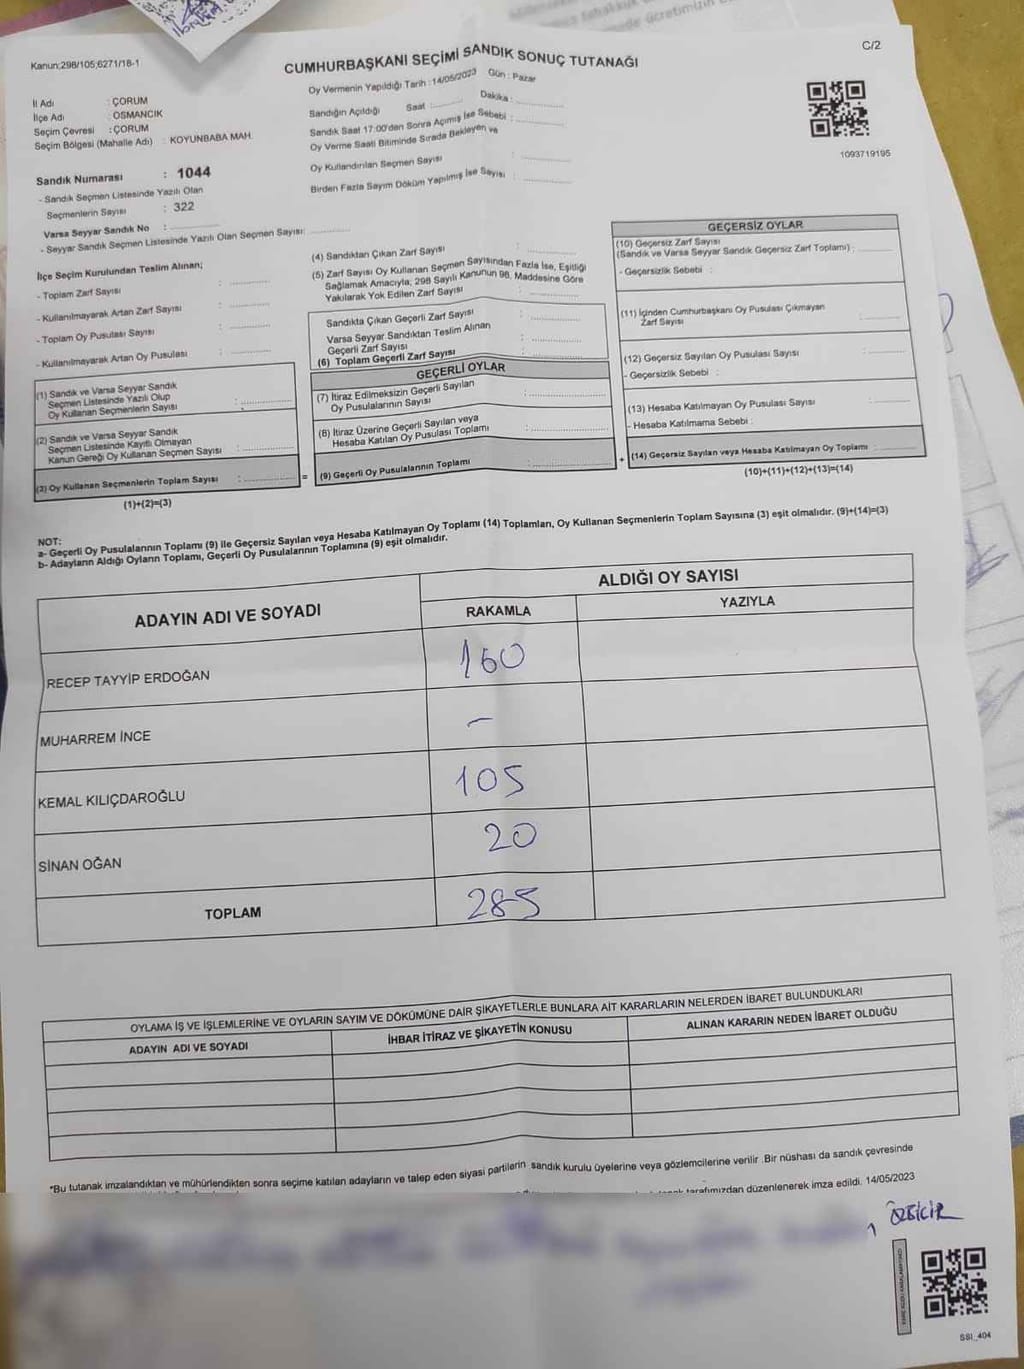 Kanun;298/105;6271/18-1
CUMHURBAŞKANI SEÇİMİ SANDIK SONUÇ TUTANAĞI
C/2
Oy Vermenin Yapıldığı Tarih : 14/05/2023 Gün : Pazar
İl Adı : ÇORUM
İlçe Adı : OSMANCIK
Seçim Çevresi : ÇORUM
Seçim Bölgesi (Mahalle Adı) : KOYUNBABA MAH.
Sandığın Açıldığı Saat : Dakika :
Sandık Saat 17:00'den Sonra Açımış İse Sebebi :
Oy Verme Saati Bitiminde Sırada Bekleyen ve
Oy Kullandırılan Seçmen Sayısı :
Birden Fazla Sayım Döküm Yapılmış İse Sayısı :
1093719195
Sandık Numarası : 1044
- Sandık Seçmen Listesinde Yazılı Olan
Seçmenlerin Sayısı : 322
Varsa Seyyar Sandık No :
- Seyyar Sandık Seçmen Listesinde Yazılı Olan Seçmen Sayısı:
İlçe Seçim Kurulundan Teslim Alınan;
- Toplam Zarf Sayısı :
- Kullanılmayarak Artan Zarf Sayısı :
- Toplam Oy Pusulası Sayısı :
- Kullanılmayarak Artan Oy Pusulası :
(1) Sandık ve Varsa Seyyar Sandık
Seçmen Listesinde Yazılı Olup
Oy Kullanan Seçmenlerin Sayısı :
(2) Sandık ve Varsa Seyyar Sandık
Seçmen Listesinde Kayıtlı Olmayan
Kanun Gereği Oy Kullanan Seçmen Sayısı :
(3) Oy Kullanan Seçmenlerin Toplam Sayısı :
(1)+(2)=(3)
(4) Sandıktan Çıkan Zarf Sayısı :
(5) Zarf Sayısı Oy Kullanan Seçmen Sayısından Fazla İse, Eşitliği
Sağlamak Amacıyla; 298 Sayılı Kanunun 98. Maddesine Göre
Yakılarak Yok Edilen Zarf Sayısı :
Sandıkta Çıkan Geçerli Zarf Sayısı :
Varsa Seyyar Sandıktan Teslim Alınan
Geçerli Zarf Sayısı :
(6) Toplam Geçerli Zarf Sayısı :
GEÇERLİ OYLAR
(7) İtiraz Edilmeksizin Geçerli Sayılan
Oy Pusulalarının Sayısı :
(8) İtiraz Üzerine Geçerli Sayılan veya
Hesaba Katılan Oy Pusulası Toplamı :
= (9) Geçerli Oy Pusulalarının Toplamı :
GEÇERSİZ OYLAR
(10) Geçersiz Zarf Sayısı
(Sandık ve Varsa Seyyar Sandık Geçersiz Zarf Toplamı) :
- Geçersizlik Sebebi :
(11) İçinden Cumhurbaşkanı Oy Pusulası Çıkmayan
Zarf Sayısı :
(12) Geçersiz Sayılan Oy Pusulası Sayısı :
- Geçersizlik Sebebi :
(13) Hesaba Katılmayan Oy Pusulası Sayısı :
- Hesaba Katılmama Sebebi :
+ (14) Geçersiz Sayılan veya Hesaba Katılmayan Oy Toplamı :
(10)+(11)+(12)+(13)=(14)
NOT:
a- Geçerli Oy Pusulalarının Toplamı (9) ile Geçersiz Sayılan veya Hesaba Katılmayan Oy Toplamı (14) Toplamları, Oy Kullanan Seçmenlerin Toplam Sayısına (3) eşit olmalıdır. (9)+(14)=(3)
b- Adayların Aldığı Oyların Toplamı, Geçerli Oy Pusulalarının Toplamına (9) eşit olmalıdır.
ADAYIN ADI VE SOYADI
ALDIĞI OY SAYISI
RAKAMLA YAZIYLA
RECEP TAYYİP ERDOĞAN 160
MUHARREM İNCE -
KEMAL KILIÇDAROĞLU 105
SİNAN OĞAN 20
TOPLAM 285
OYLAMA İŞ VE İŞLEMLERİNE VE OYLARIN SAYIM VE DÖKÜMÜNE DAİR ŞİKAYETLERLE BUNLARA AİT KARARLARIN NELERDEN İBARET BULUNDUKLARI
ADAYIN ADI VE SOYADI İHBAR İTİRAZ VE ŞİKAYETİN KONUSU ALINAN KARARIN NEDEN İBARET OLDUĞU
*Bu tutanak imzalandıktan ve mühürlendikten sonra seçime katılan adayların ve talep eden siyasi partilerin sandık kurulu üyelerine veya gözlemcilerine verilir .Bir nüshası da sandık çevresinde
tarafımızdan düzenlenerek imza edildi. 14/05/2023
ÖZBİCİR
SSI_404